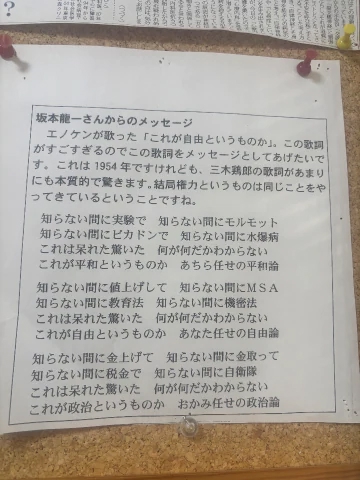 ？
坂本龍一さんからのメッセージ
エノケンが歌った「これが自由というものか」。この歌詞
がすごすぎるのでこの歌詞をメッセージとしてあげたいで
す。これは1954年ですけれども、三木鶏郎の歌詞があまり
にも本質的で驚きます。結局権力というものは同じことをや
ってきているということですね。
知らない間に実験で　知らない間にモルモット
知らない間にピカドンで　知らない間に水爆病
これは呆れた驚いた　何が何だかわからない
これが平和というものか　あちら任せの平和論
知らない間に値上げして　知らない間にＭＳＡ
知らない間に教育法　知らない間に機密法
これは呆れた驚いた　何が何だかわからない
これが自由というものか　あなた任せの自由論
知らない間に金上げて　知らない間に金取って
知らない間に税金で　知らない間に自衛隊
これは呆れた驚いた　何が何だかわからない
これが政治というものか　おかみ任せの政治論